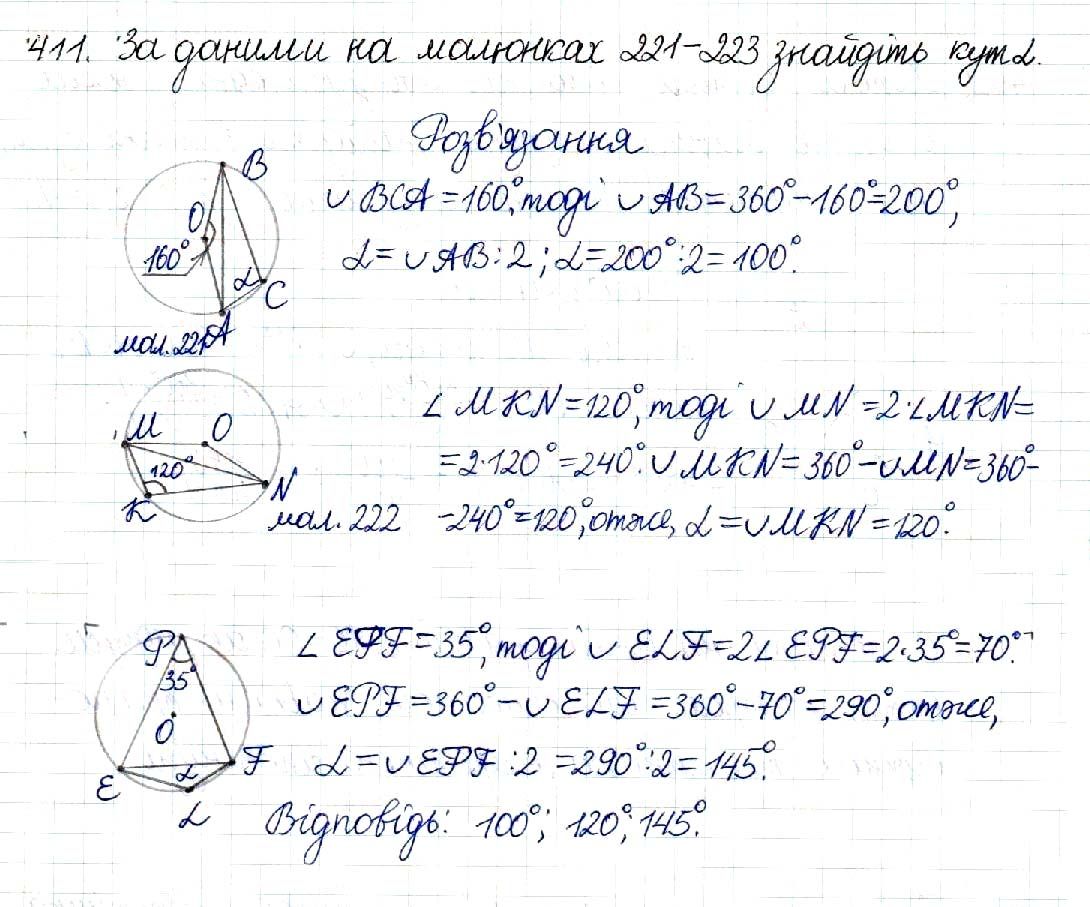 411. За даними на малюнках 221-223 знайдіть кут α.
Розв'язання
B
O
160°
α
C
A
мал. 221
∪ BCA = 160°, тоді ∪ AB = 360° - 160° = 200°,
α = ∪ AB : 2 ; α = 200° : 2 = 100°.
M
O
120°
K
N
мал. 222
∠ MKN = 120°, тоді ∪ MN = 2·∠ MKN =
= 2·120° = 240°. ∪ MKN = 360° - ∪ MN = 360° -
- 240° = 120°, отже, α = ∪ MKN = 120°.
P
35°
O
E
α
F
L
∠ EPF = 35°, тоді ∪ ELF = 2∠ EPF = 2·35° = 70°.
∪ EPF = 360° - ∪ ELF = 360° - 70° = 290°, отже,
α = ∪ EPF : 2 = 290° : 2 = 145°.
Відповідь: 100°; 120°; 145°.